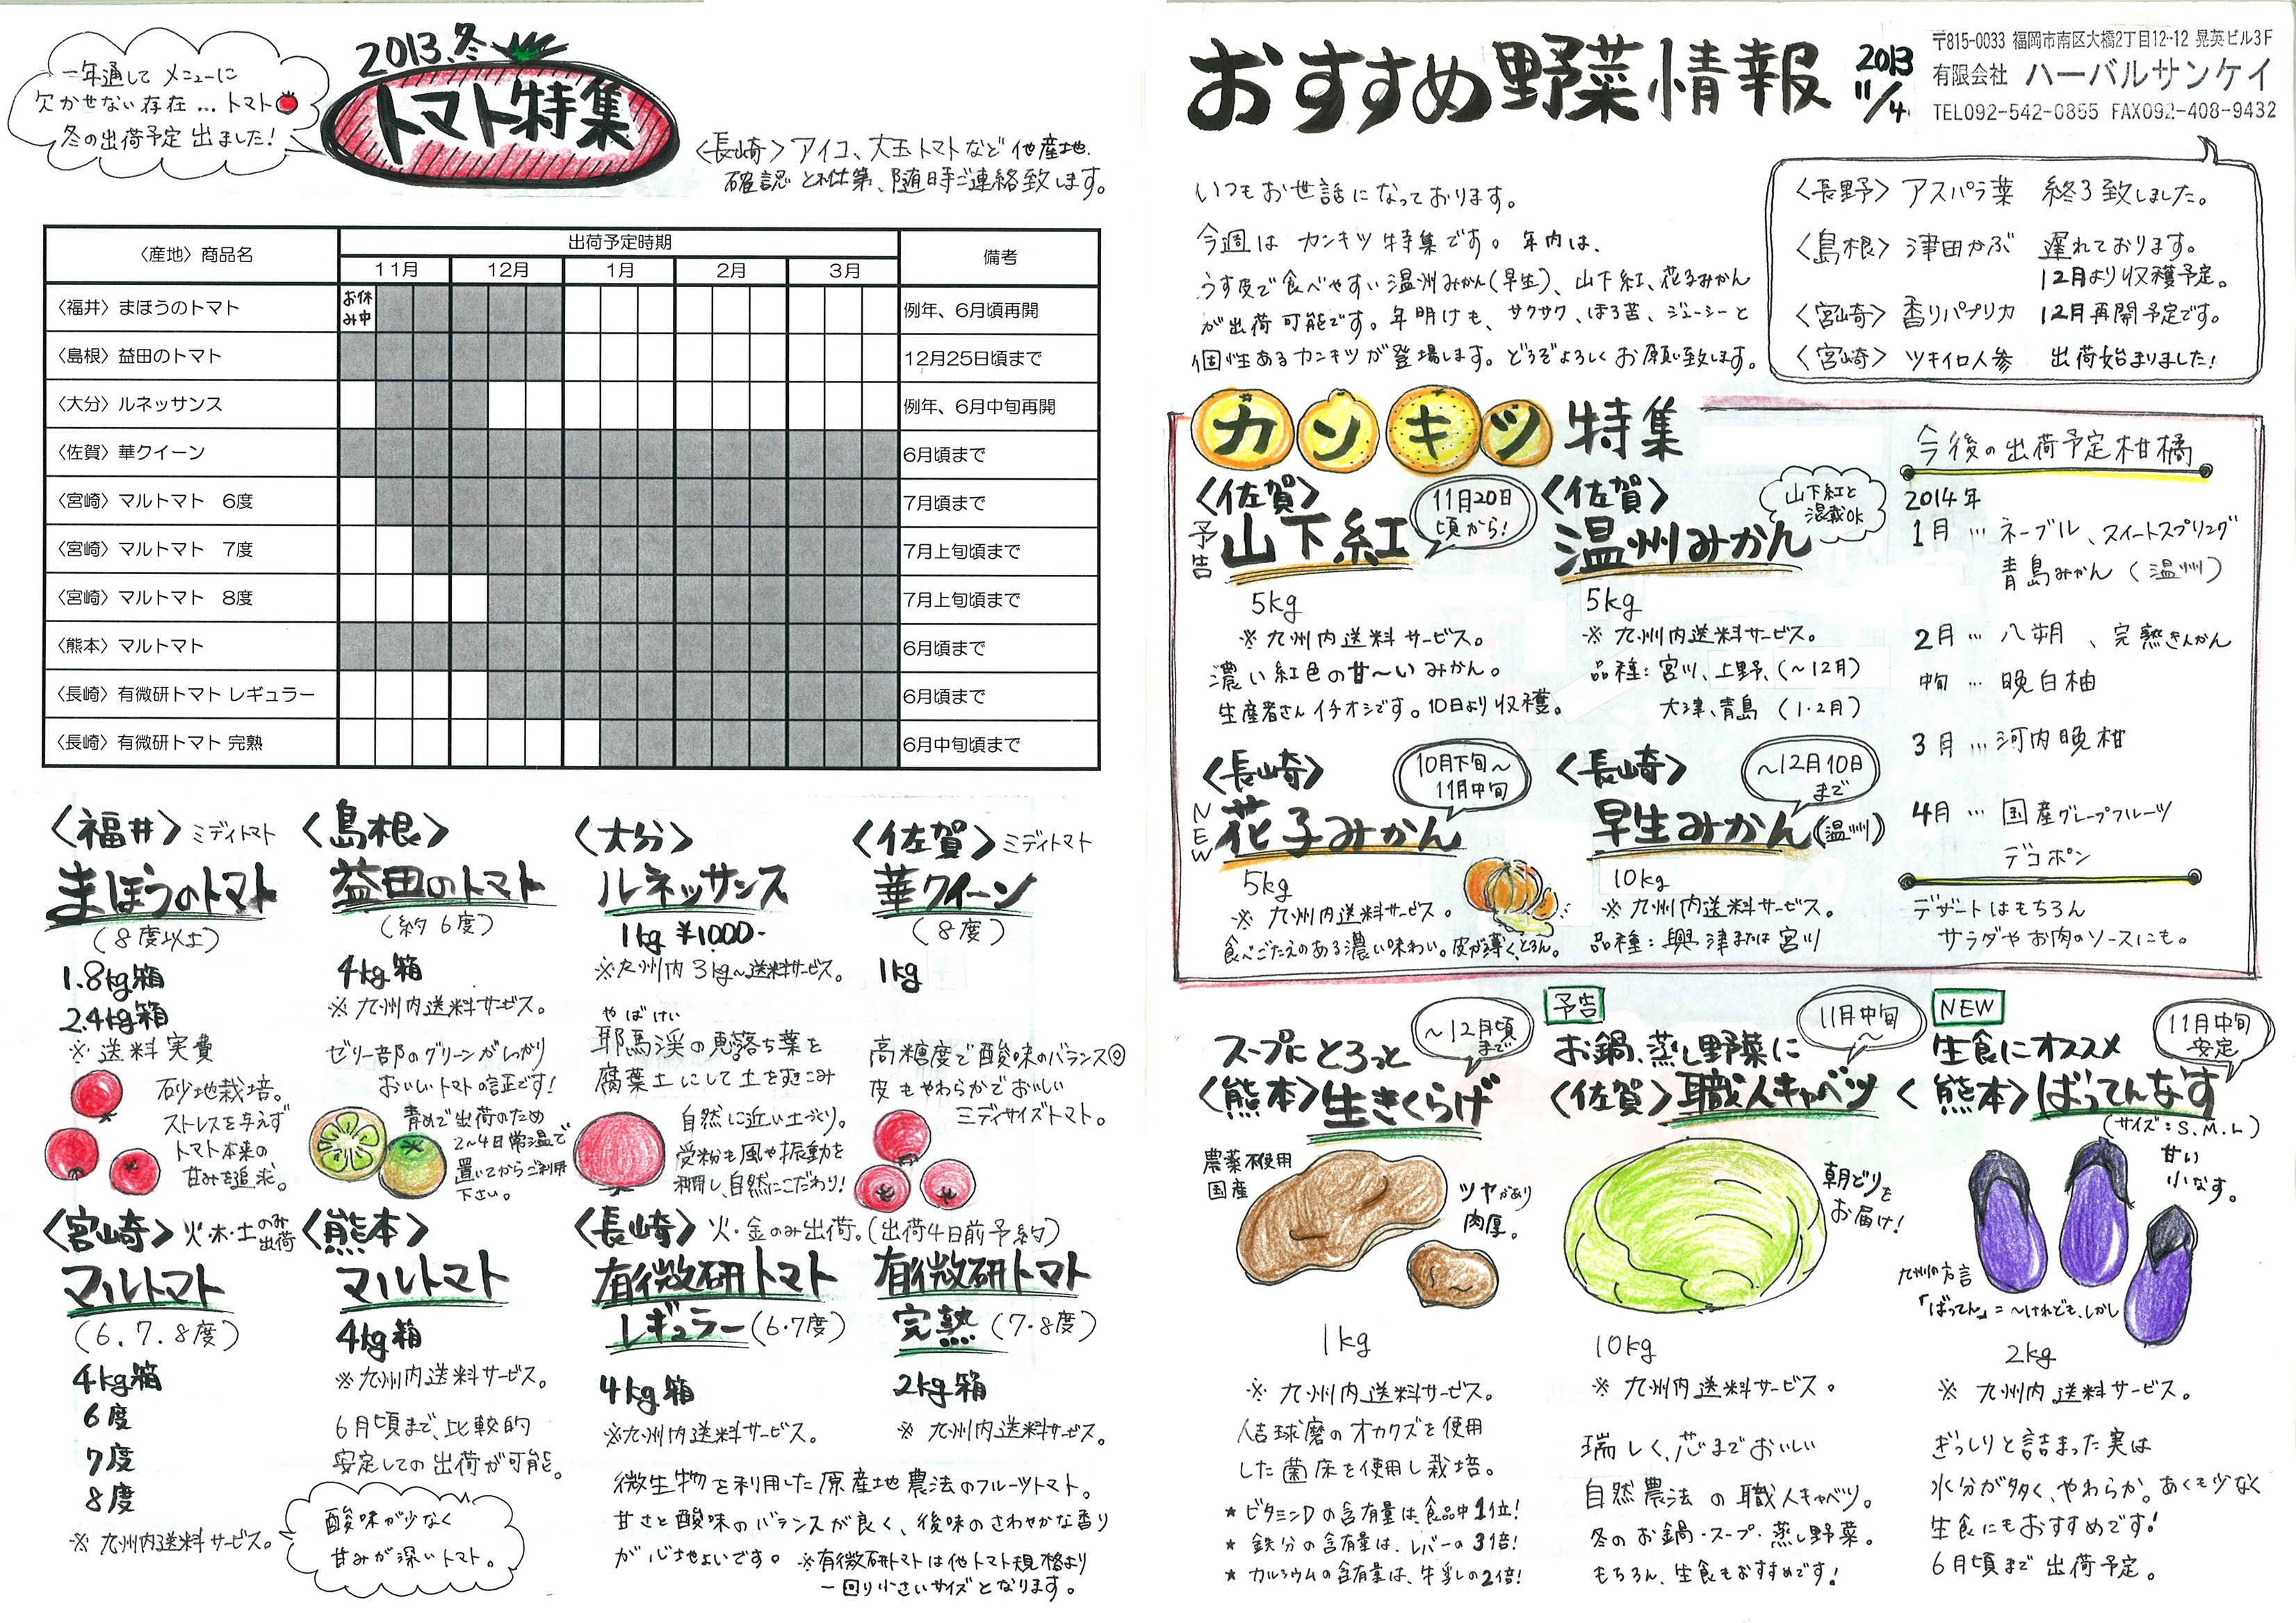 一年通して メニューに
欠かせない存在…トマト
冬の出荷予定 出ました!
2013.冬
トマト特集
〈長崎〉アイコ、大玉トマトなど他産地、
確認とれ次第、随時ご連絡致します。
〈産地〉商品名
出荷予定時期
備考
11月 12月 1月 2月 3月
〈福井〉まほうのトマト お休み中 例年、6月頃再開
〈島根〉益田のトマト 12月25日頃まで
〈大分〉ルネッサンス 例年、6月中旬再開
〈佐賀〉華クイーン 6月頃まで
〈宮崎〉マルトマト 6度 7月頃まで
〈宮崎〉マルトマト 7度 7月上旬頃まで
〈宮崎〉マルトマト 8度 7月上旬頃まで
〈熊本〉マルトマト 6月頃まで
〈長崎〉有微研トマト レギュラー 6月頃まで
〈長崎〉有微研トマト 完熟 6月中旬頃まで
〈福井〉ミディトマト
まほうのトマト
(8度以上)
1.8kg箱
2.4kg箱
※送料実費
砂地栽培。
ストレスを与えず
トマト本来の
甘みを追求。
〈島根〉
益田のトマト
(約6度)
4kg箱
※九州内送料サービス。
ゼリー部のグリーンがしっかり
おいしいトマトの証正です!
青めで出荷のため
2~4日常温で
置いてからご利用
下さい。
〈大分〉
ルネッサンス
1kg ¥1000-
※九州内3kg~送料サービス。
やばけい
耶馬渓の恵み落ち葉を
腐葉土にして土をすきこみ
自然に近い土づくり。
受粉も風や振動を
利用し、自然にこだわり!
〈佐賀〉ミディトマト
華クイーン
(8度)
1kg
高糖度で酸味のバランス◎
皮もやわらかでおいしい
ミディサイズトマト。
〈宮崎〉火・木・土のみ出荷
マルトマト
(6.7.8度)
4kg箱
6度
7度
8度
※九州内送料サービス。
〈熊本〉
マルトマト
4kg箱
※九州内送料サービス。
6月頃まで、比較的
安定しての出荷が可能。
酸味が少なく
甘みが深いトマト。
〈長崎〉火・金のみ出荷。(出荷4日前予約)
有微研トマト
レギュラー(6・7度)
4kg箱
※九州内送料サービス。
有微研トマト
完熟(7・8度)
2kg箱
※九州内送料サービス。
微生物を利用した原産地農法のフルーツトマト。
甘さと酸味のバランスが良く、後味のさわやかな香り
が心地よいです。※有微研トマトは他トマト規格より
一回り小さいサイズとなります。
おすすめ野菜情報
2013
11/4
〒815-0033 福岡市南区大橋2丁目12-12 晃英ビル3F
有限会社 ハーバルサンケイ
TEL092-542-0855 FAX092-408-9432
いつもお世話になっております。
今週は カンキツ特集です。年内は、
うす皮で食べやすい温州みかん(早生)、山下紅、花子みかん
が出荷可能です。年明けも、サクサク、ほろ苦、ジューシーと
個性あるカンキツが登場します。どうぞよろしくお願い致します。
〈長野〉アスパラ菜 終了致しました。
〈島根〉津田かぶ 遅れております。
12月より収穫予定。
〈宮崎〉香りパプリカ 12月再開予定です。
〈宮崎〉ツキイロ人参 出荷始まりました!
カンキツ特集
〈佐賀〉
予告
山下紅
11月20日
頃から!
5kg
※九州内送料サービス。
濃い紅色の甘~いみかん。
生産者さんイチオシです。10日より収穫。
〈佐賀〉
温州みかん
山下紅と
混載OK
5kg
※九州内送料サービス。
品種:宮川、上野、(~12月)
大津、青島 (1・2月)
〈長崎〉
NEW
花子みかん
10月下旬~
11月中旬
5kg
※九州内送料サービス。
食べごたえのある濃い味わい。皮が薄く、とろん。
〈長崎〉
早生みかん(温州)
~12月10日
まで
10kg
※九州内送料サービス。
品種:興津または宮川
今後の出荷予定柑橘
2014年
1月…ネーブル、スイートスプリング
青島みかん(温州)
2月…八朔、完熟きんかん
中旬…晩白柚
3月…河内晩柑
4月…国産グレープフルーツ
デコポン
デザートはもちろん
サラダやお肉のソースにも。
スープにとろっと
〈熊本〉生きくらげ
~12月頃
まで
農薬不使用
国産
ツヤがあり
肉厚。
1kg
※九州内送料サービス。
人吉球磨のオカクズを使用
した菌床を使用し栽培。
★ビタミンDの含有量は、食品中1位!
★鉄分の含有量は、レバーの3倍!
★カルシウムの含有量は、牛乳の2倍!
予告
お鍋、蒸し野菜に
〈佐賀〉職人キャベツ
11月中旬
~
朝どりを
お届け!
10kg
※九州内送料サービス。
瑞しく、芯までおいしい
自然農法の職人キャベツ。
冬のお鍋・スープ・蒸し野菜。
もちろん、生食もおすすめです!
NEW
生食にオススメ
〈熊本〉ばってんなす
11月中旬
安定
(サイズ:S.M.L)
甘い
小なす。
九州の方言
「ばってん」=~けれども、しかし
2kg
※九州内送料サービス。
ぎっしりと詰まった実は
水分が多く、やわらか。あくも少なく
生食にもおすすめです!
6月頃まで出荷予定。